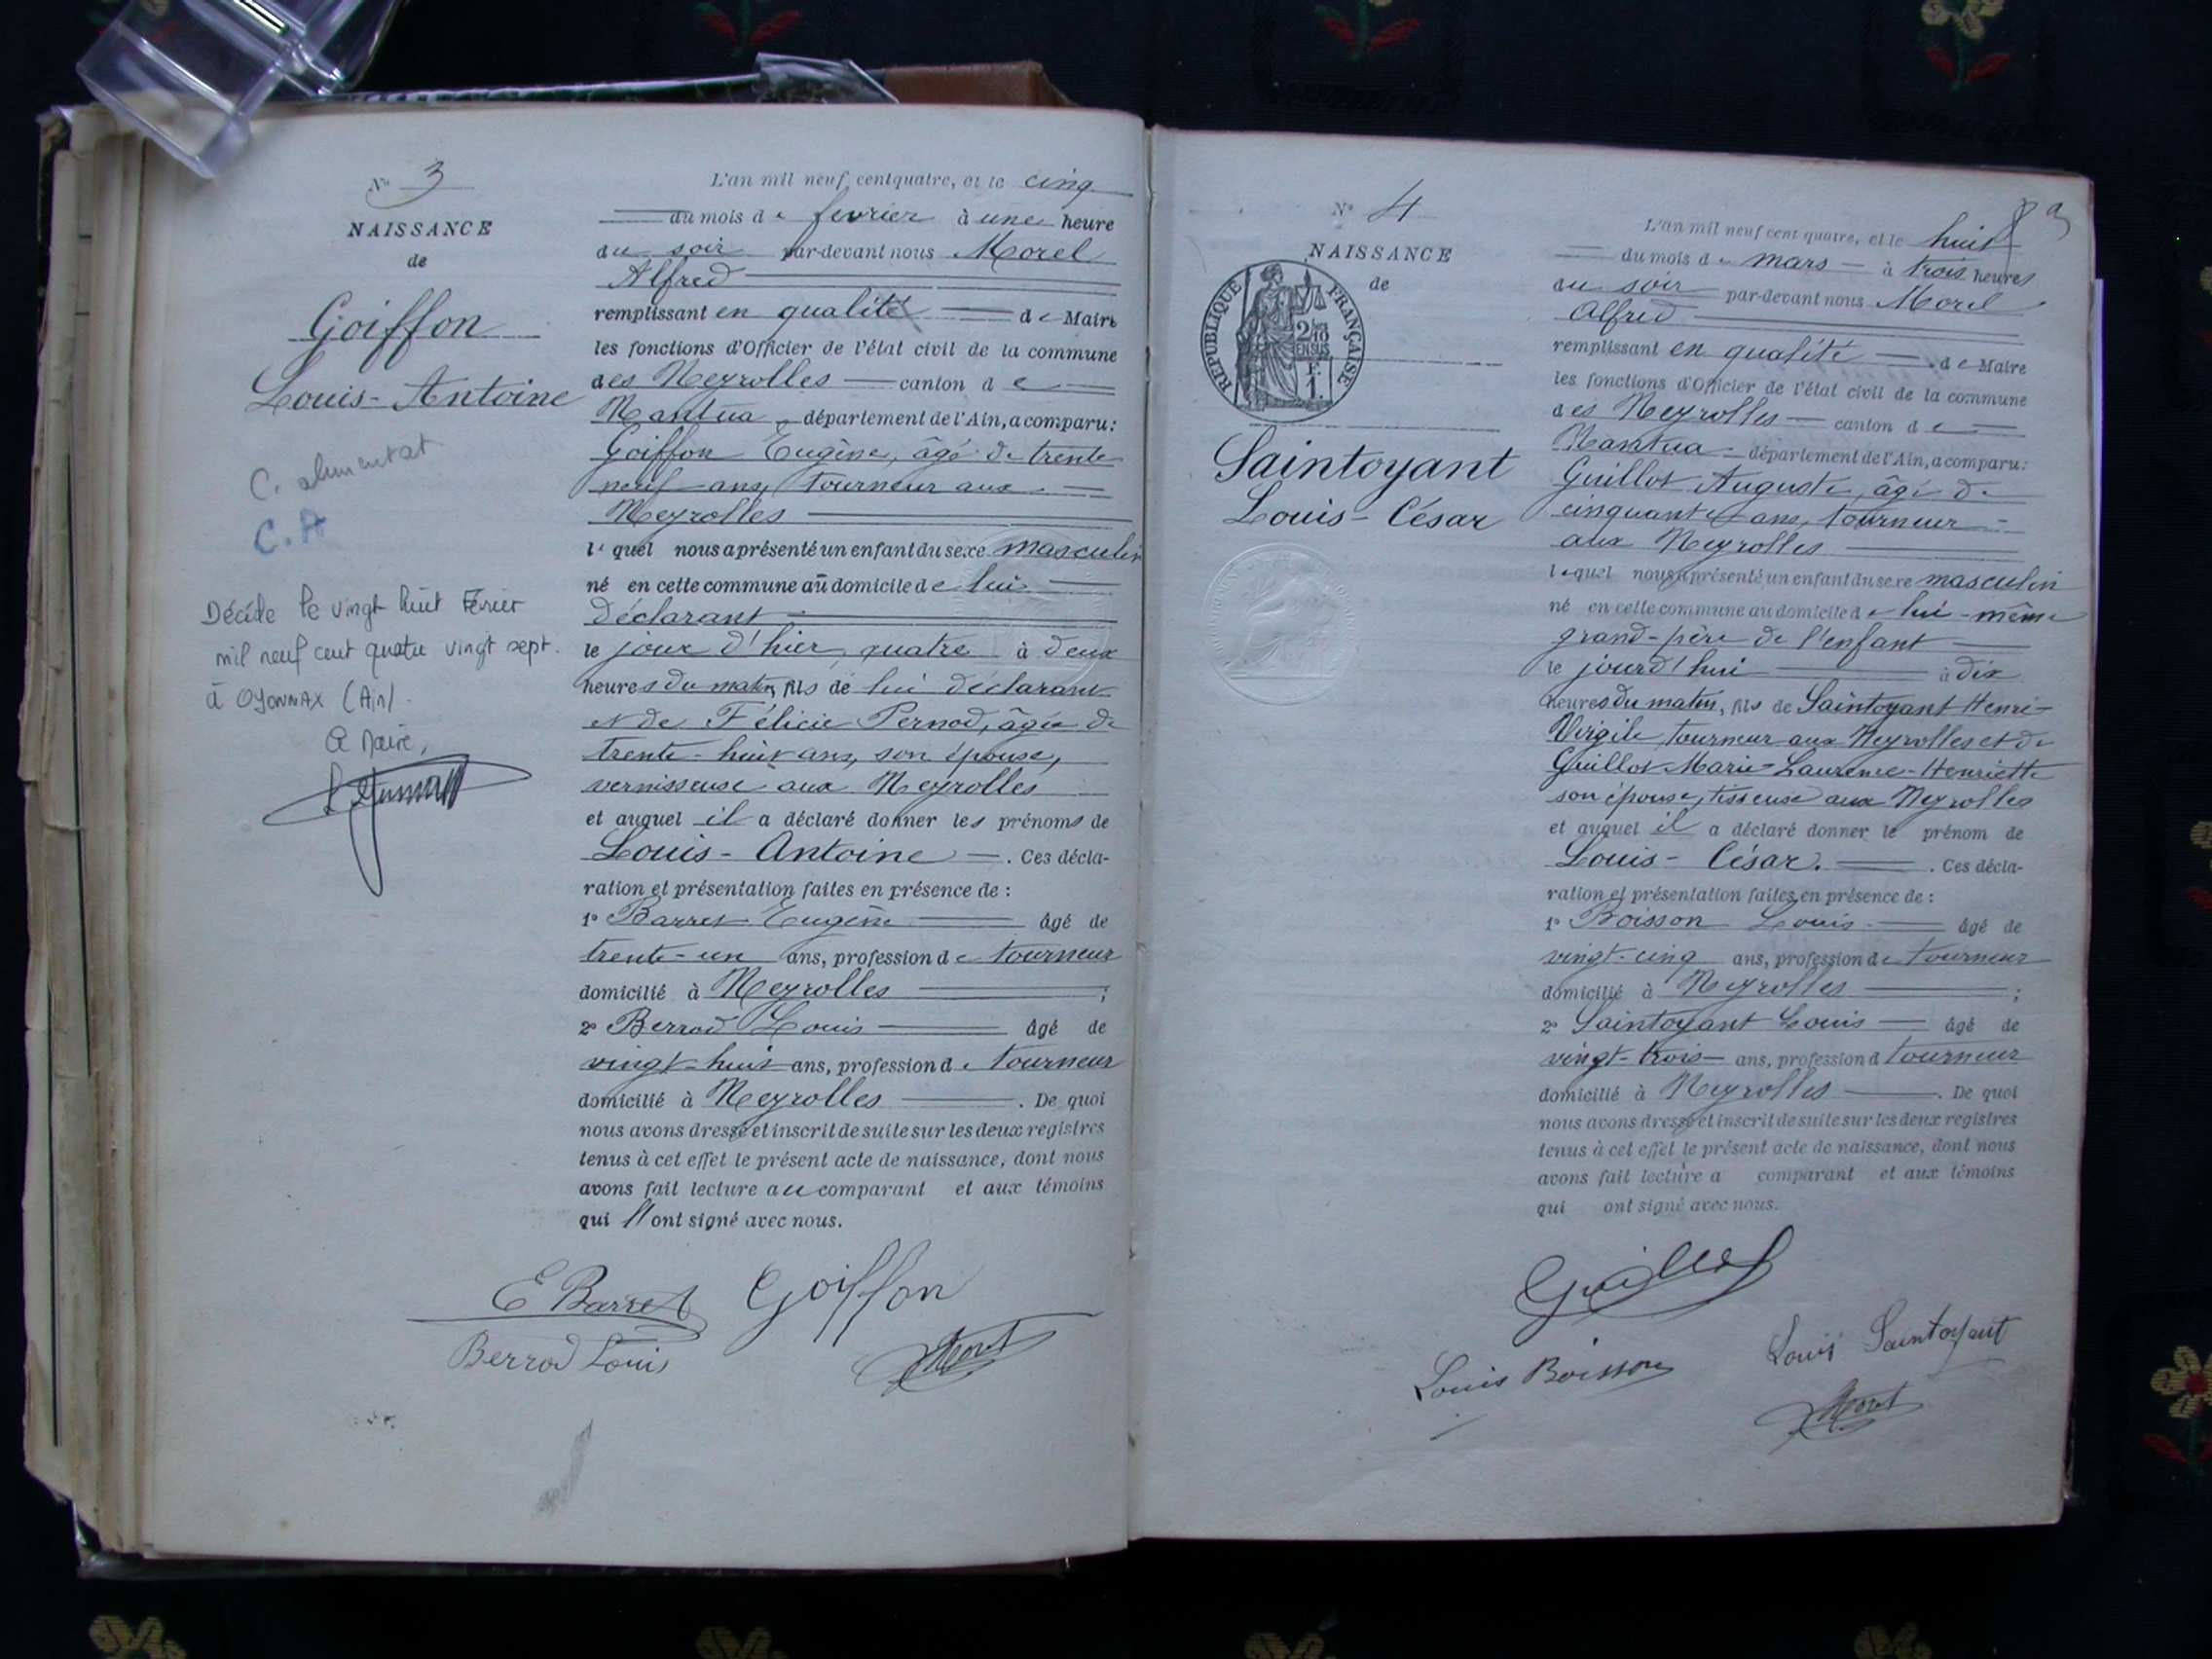 N° 3
NAISSANCE
de
Goiffon
Louis-Antoine
C. alimentat
C. A
Décédé le vingt huit Février
mil neuf cent quatre vingt sept.
à OYONNAX (Ain).
Le Maire,
L'an mil neuf cent quatre, et le cinq
du mois de février à une heure
du soir par-devant nous Morel
Alfred
remplissant en qualité de Maire
les fonctions d'Officier de l'état civil de la commune
des Neyrolles canton de
Nantua, département de l'Ain, a comparu:
Goiffon Eugène, âgé de trente
neuf ans, tourneur aux
Neyrolles
lequel nous a présenté un enfant du sexe masculin
né en cette commune au domicile de lui
déclarant
le jour d'hier, quatre à deux
heures du matin, fils de lui déclarant
et de Félicie Pernod, âgée de
trente-huit ans, son épouse,
vernisseuse aux Neyrolles
et auquel il a déclaré donner les prénoms de
Louis-Antoine. Ces décla-
ration et présentation faites en présence de :
1° Barret Eugène âgé de
trente-un ans, profession de tourneur
domicilié à Neyrolles ;
2° Berrod Louis âgé de
vingt-huit ans, profession de tourneur
domicilié à Neyrolles . De quoi
nous avons dressé et inscrit de suite sur les deux registres
tenus à cet effet le présent acte de naissance, dont nous
avons fait lecture au comparant et aux témoins
qui ont signé avec nous.
E Barret Goiffon
Berrod Louis Morel
N° 4
NAISSANCE
de
REPUBLIQUE FRANÇAISE
2/10
EN SUS
F.
1.
Saintoyant
Louis-César
L'an mil neuf cent quatre, et le huit
du mois de mars à trois heures
du soir par-devant nous Morel
Alfred
remplissant en qualité de Maire
les fonctions d'Officier de l'état civil de la commune
des Neyrolles canton de
Nantua département de l'Ain, a comparu:
Guillot Auguste, âgé de
cinquante ans, tourneur
aux Neyrolles
lequel nous a présenté un enfant du sexe masculin
né en cette commune au domicile de lui-même
grand-père de l'enfant
le jourd'hui à dix
heures du matin, fils de Saintoyant Henri-
Virgile, tourneur aux Neyrolles et de
Guillot Marie-Laurence-Henriette
son épouse, tisseuse aux Neyrolles
et auquel il a déclaré donner le prénom de
Louis-César. . Ces décla-
ration et présentation faites en présence de :
1° Boisson Louis âgé de
vingt-cinq ans, profession de tourneur
domicilié à Neyrolles ;
2° Saintoyant Louis âgé de
vingt-trois ans, profession d tourneur
domicilié à Neyrolles . De quoi
nous avons dressé et inscrit de suite sur les deux registres
tenus à cet effet le présent acte de naissance, dont nous
avons fait lecture a comparant et aux témoins
qui ont signé avec nous.
Guillot
Louis Boisson Louis Saintoyant
Morel